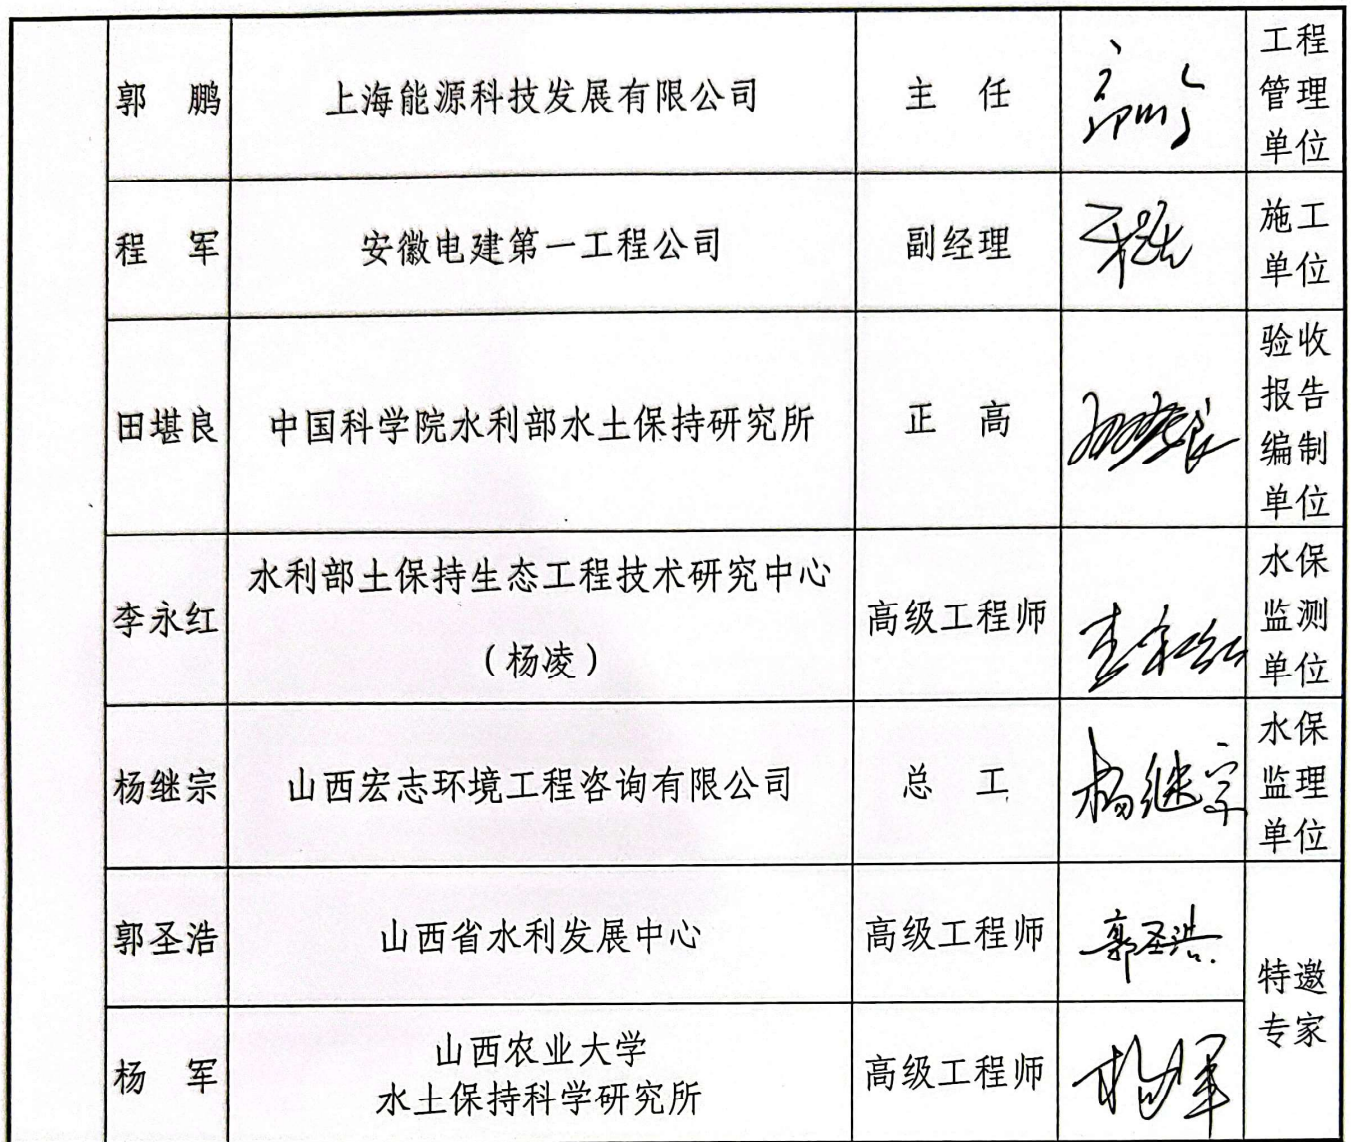 郭 鹏 上海能源科技发展有限公司 主 任 郭鹏 工程
管理
单位
程 军 安徽电建第一工程公司 副经理 程军 施工
单位
田堪良 中国科学院水利部水土保持研究所 正 高 田堪良 验收
报告
编制
单位
李永红 水利部土保持生态工程技术研究中心
（杨凌） 高级工程师 李永红 水保
监测
单位
杨继宗 山西宏志环境工程咨询有限公司 总 工 杨继宗 水保
监理
单位
郭圣浩 山西省水利发展中心 高级工程师 郭圣浩 特邀
专家
杨 军 山西农业大学
水土保持科学研究所 高级工程师 杨军